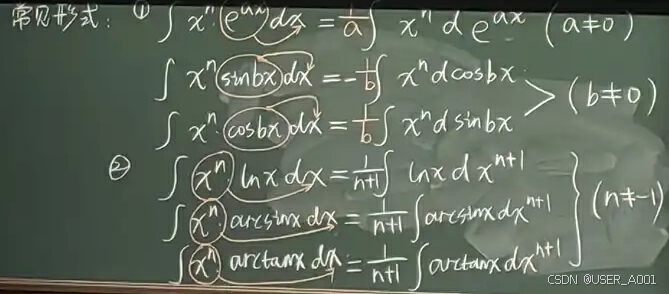 常见形式: ① ∫ xⁿ·e^{ax} dx = 1/a ∫ xⁿ d e^{ax} (a≠0)
∫ xⁿ sinbx dx = -1/b ∫ xⁿ d cosbx
∫ xⁿ·cosbx dx = 1/b ∫ xⁿ d sinbx > (b≠0)
② ∫ xⁿ·lnx dx = 1/(n+1) ∫ lnx d x^{n+1}
∫ xⁿ·arcsinx dx = 1/(n+1) ∫ arcsinx dx^{n+1} } (n≠-1)
∫ xⁿ·arctanx dx = 1/(n+1) ∫ arctanx dx^{n+1}
CSDN @USER_A001